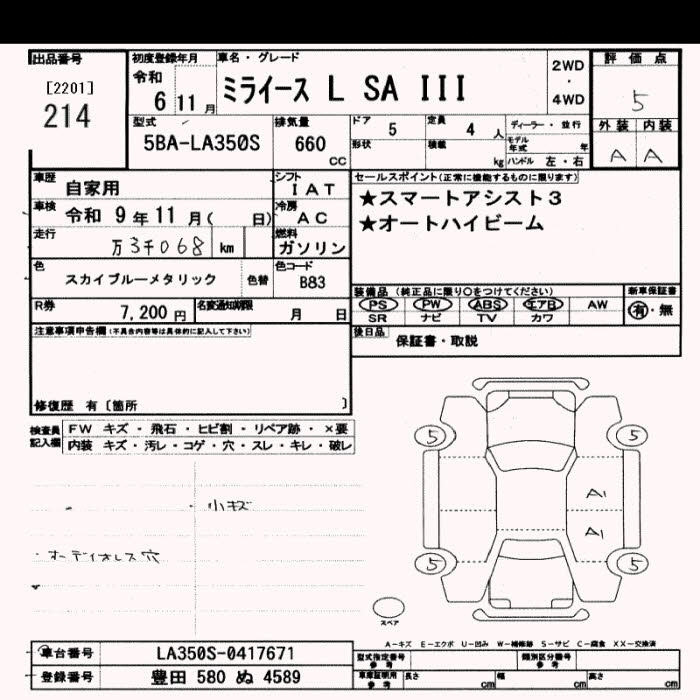 出品番号
[2201]
214
初度登録年月
令和
6 11 月
車名・グレード
ミライース L SA III
2WD
・
4WD
評価点
5
外装 内装
A A
型式
5BA-LA350S
排気量
660
CC
ドア 5
定員 4 人
ディーラー・並行
形状
積載 kg
モデル年式 年
ハンドル 左・右
車歴
自家用
シフト
I A T
車検
令和 9 年 11 月( 日)
冷房
A C
走行
万 3千068 km
燃料
ガソリン
色
スカイブルーメタリック
色替
色コード
B83
R券
7,200 円
名変通知期限
月 日
セールスポイント(正常に機能するものに限ります)
★スマートアシスト3
★オートハイビーム
装備品 (純正品に限り○をつけてください)
PS PW ABS エアB AW
SR ナビ TV カワ
新車保証書
有・無
後日品
保証書・取説
注意事項申告欄(不具合内容等は具体的に記入して下さい)
修復歴 有〔箇所 〕
検査員記入欄
FW キズ・飛石・ヒビ割・リペア跡・×要
内装 キズ・汚レ・コゲ・穴・スレ・キレ・破レ
・小キズ
・オーディオレス穴
5 5
A1
A1
5 5
スペア
A-キズ E-エクボ U-凹み W-補修跡 S-サビ C-腐食 XX-交換済
車台番号
LA350S-0417671
登録番号
豊田 580 ぬ 4589
型式指定番号
参考
類別区分番号
参考
車庫証明用
参考
長さ cm
幅 cm
高さ cm